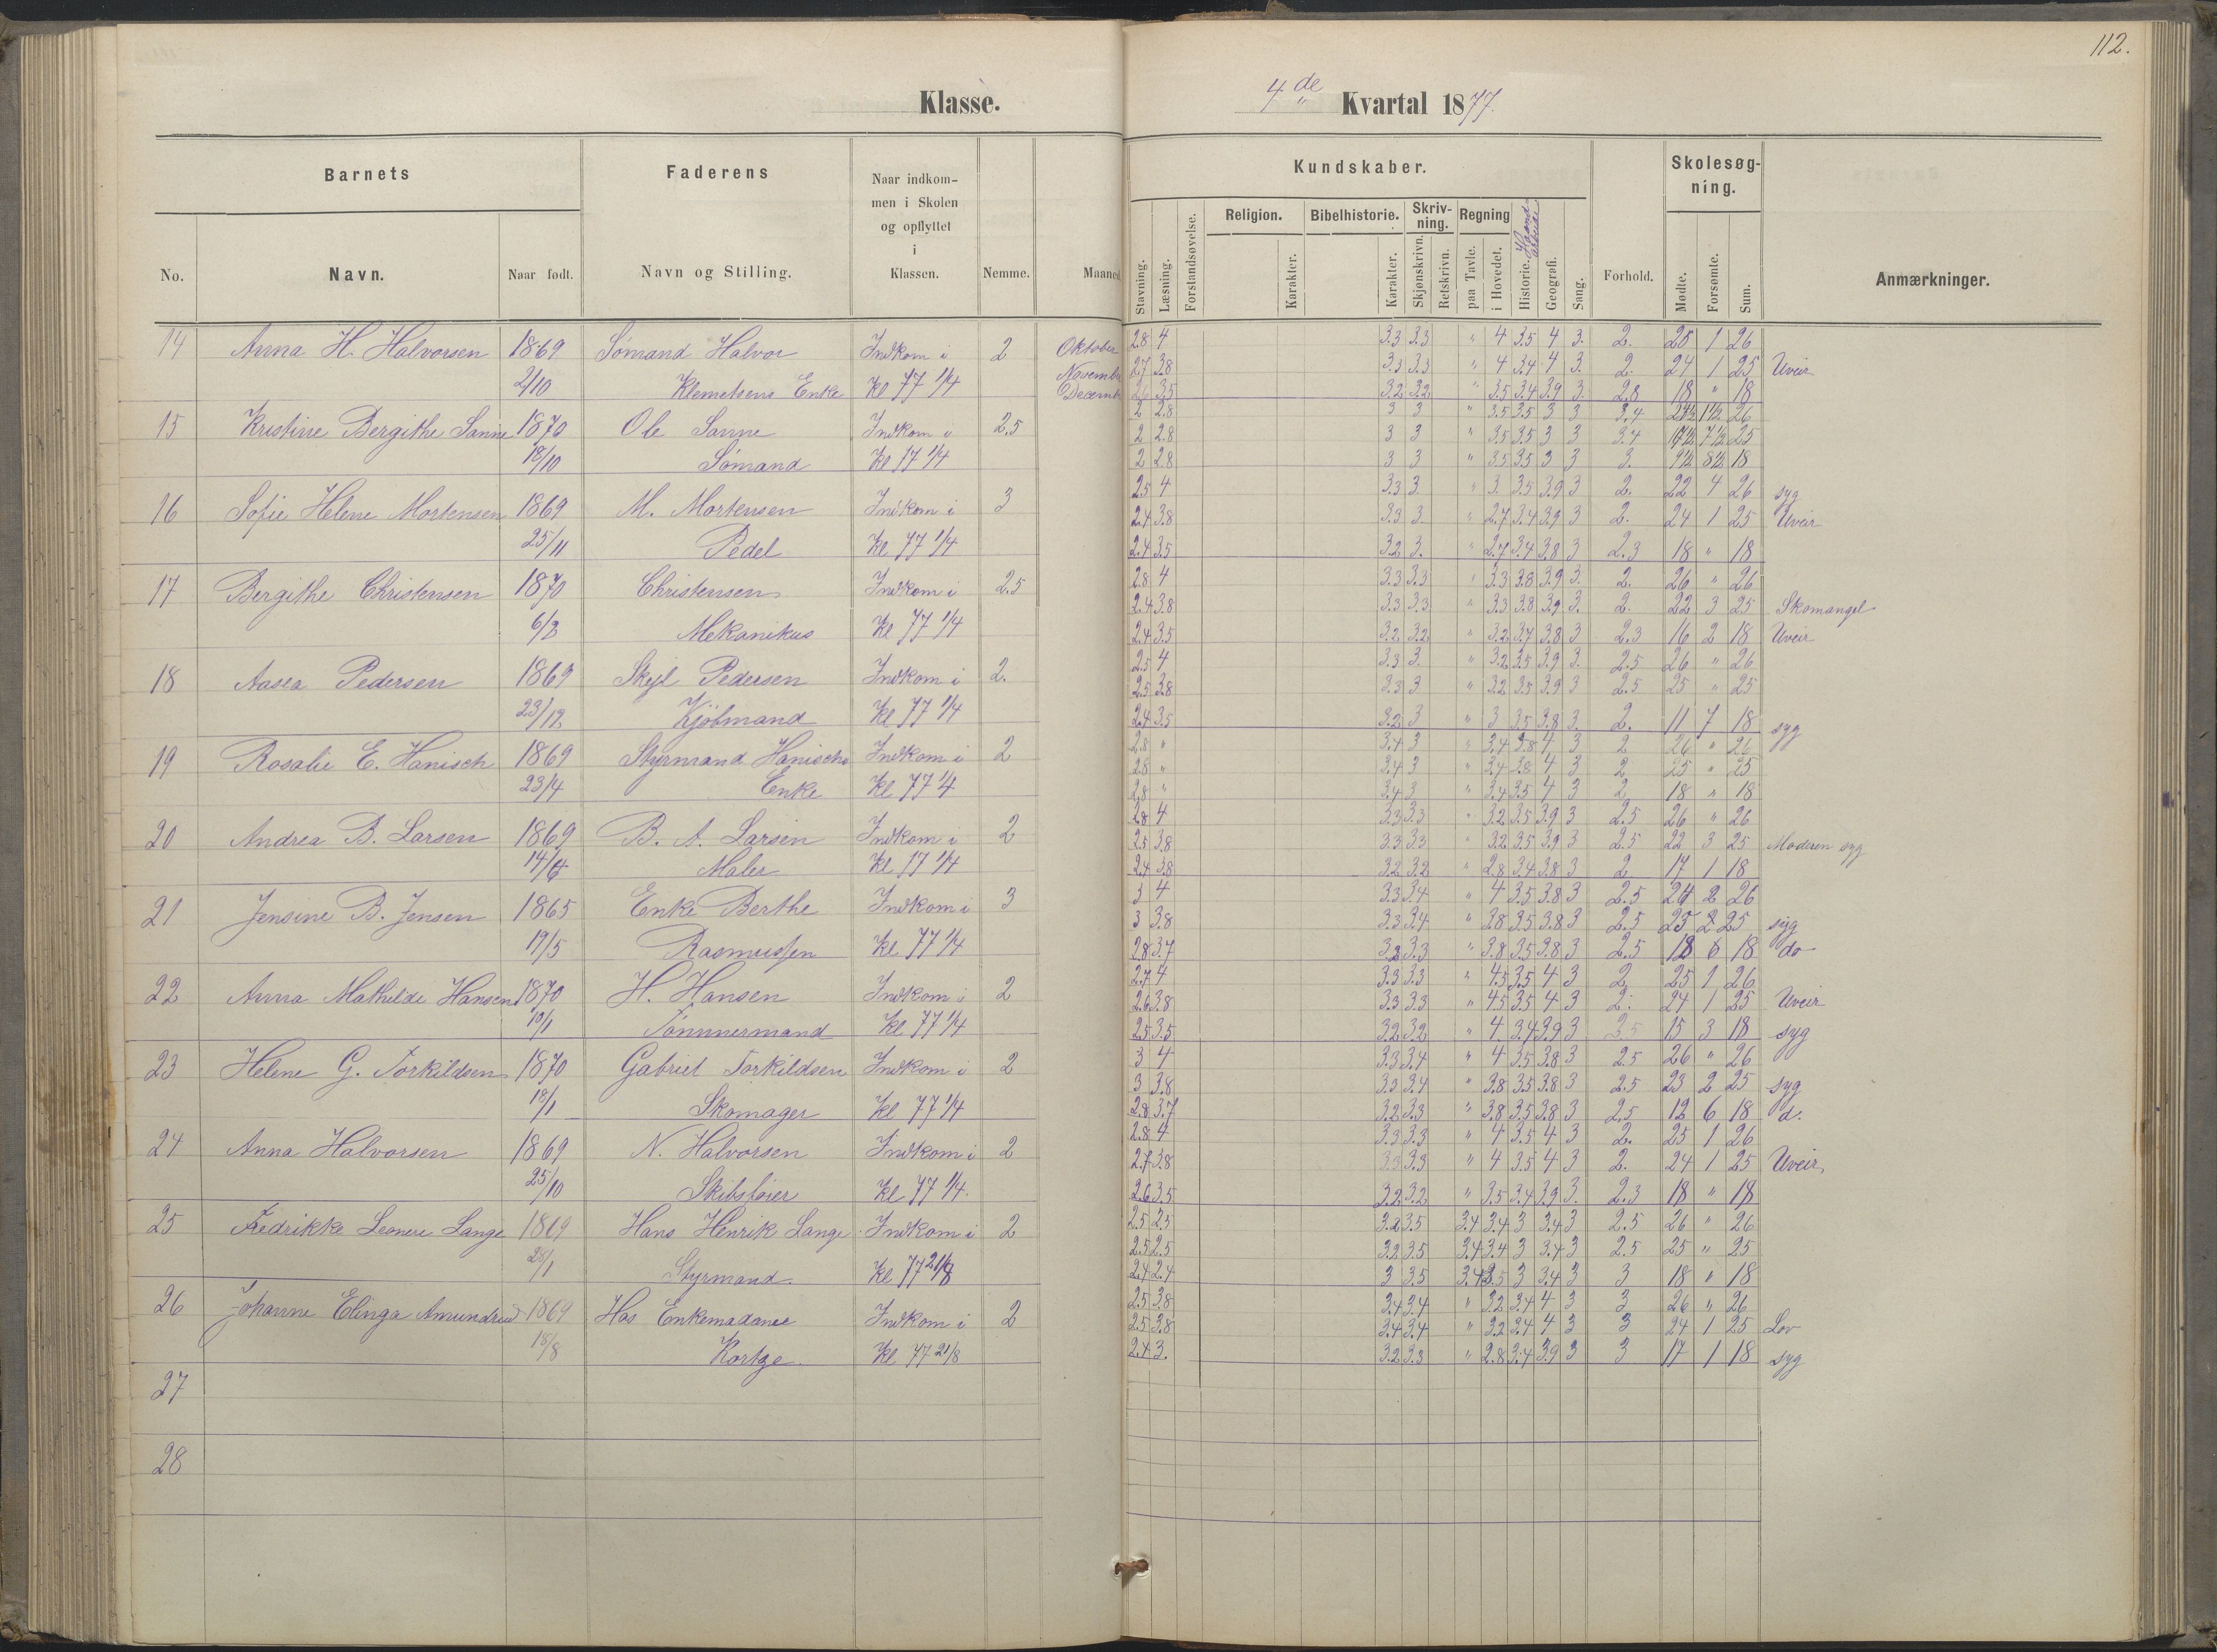 112.
Klasse.
4de Kvartal 1877.
Barnets
Faderens
Naar indkommen i Skolen og opflyttet i Klassen.
No.
Navn.
Naar født.
Navn og Stilling.
Nemme.
Maaned
Kundskaber.
Skolesøgning.
Stavning.
Læsning.
Forstandsøvelse.
Religion.
Karakter.
Bibelhistorie.
Karakter.
Skrivning.
Skjønskrivn.
Retskrivn.
Regning
paa Tavle.
i Hovedet.
Historie.
Haandarbeide
Geografi.
Sang.
Forhold.
Mødte.
Forsømte.
Sum.
Anmærkninger.
14 Anna H. Halvorsen 1869 Sömand Halvor Indkom i 2 Oktober 2.8 4 3.3 3.3 " 4 3.5 4 3. 2. 25 1 26
November 2.7 3.8 3.3 3.3 " 4 3.4 4 3. 2. 24 1 25 Uveir
2/10 Klemetsens Enke Kl 77 1/4 Decemb 2.6 3.5 3.2 3.2 " 3.5 3.4 3.9 3. 2.8 18 " 18
15 Kristine Bergithe Sanne 1870 Ole Sanne Indkom i 2.5 2 2.8 3 3 " 3.5 3.5 3 3 3.4 24½ 1½ 26
2 2.8 3 3 " 3.5 3.5 3 3 3.4 17½ 7½ 25
18/10 Sömand Kl 77 1/4 2 2.8 3 3 " 3.5 3.5 3 3 3. 9½ 8½ 18
16 Sofie Helene Mortensen 1869 M. Mortensen Indkom i 3 2.5 4 3.3 3. " 3. 3.5 3.9 3 2. 22 4 26 syg
2.4 3.8 3.3 3. " 2.7 3.4 3.9 3 2. 24 1 25 Uveir
25/11 Pedel Kl 77 1/4 2.4 3.5 3.2 3. " 2.7 3.4 3.8 3 2.3 18 " 18
17 Bergithe Christensen 1870 Christensen Indkom i 2.5 2.8 4 3.3 3.3 " 3.3 3.8 3.9 3. 2. 26 " 26
2.4 3.8 3.3 3.3 " 3.3 3.8 3.9 3. 2. 22 3 25 Skomangel
6/2 Mekanikus Kl 77 1/4 2.4 3.5 3.2 3.2 " 3.2 3.7 3.8 3 2.3 16 2 18 Uveir
18 Aasea Pedersen 1869 Skejl Pedersen Indkom i 2. 2.5 4 3.3 3. " 3.2 3.5 3.9 3. 2.5 26 " 26
2.5 3.8 3.3 3 " 3.2 3.5 3.9 3 2.5 25 " 25
23/12 Kjöbmand Kl 77 1/4 2.4 3.5 3.2 3 " 3 3.5 3.8 3. 2. 11 7 18 syg
19 Rosalie E. Hanisch 1869 Styrmand Hanischs Indkom i 2 2.8 " 3.4 3 " 3.4 3.8 4 3 2 26 " 26
2.8 " 3.4 3 " 3.4 3.8 4 3 2 25 " 25
23/4 Enke Kl 77 1/4 2.8 " 3.4 3 " 3.4 3.5 4 3 2 18 " 18
20 Andrea B. Larsen 1869 B. A. Larsen Indkom i 2 2.8 4 3.3 3.3 " 3.2 3.5 3.9 3 2.5 26 " 26
2.5 3.8 3.3 3.3 " 3.2 3.5 3.9 3 2.5 22 3 25 Moderen syg
14/4 Maler Kl 77 1/4 2.4 3.8 3.2 3.2 " 2.8 3.4 3.8 3 2 17 1 18
21 Jensine B. Jensen 1865 Enke Berthe Indkom i 3 3 4 3.3 3.4 " 4 3.5 3.8 3 2.5 24 2 26
3 3.8 3.3 3.4 " 3.8 3.5 3.8 3 2.5 25 2 25 syg
19/5 Rasmussen Kl 77 1/4 2.8 3.7 3.2 3.3 " 3.8 3.5 3.8 3 2.5 18 6 18 do
22 Anna Mathilde Hansen 1870 H. Hansen Indkom i 2 2.7 4 3.3 3.3 " 4.5 3.5 4 3 2 25 1 26
2.6 3.8 3.3 3.3 " 4.5 3.5 4 3 2. 24 1 25 Uveir
10/1 Tömmermand Kl 77 1/4 2.5 3.5 3.2 3.2 " 4 3.4 3.9 3 2.5 15 3 18 syg
23 Helene G. Torkildsen 1870 Gabriel Torkildsen Indkom i 2 3 4 3.3 3.4 " 4 3.5 3.8 3 2.5 26 " 26
3 3.8 3.3 3.4 " 3.8 3.5 3.8 3 2.5 23 2 25 syg
18/1 Skomager Kl 77 1/4 2.8 3.7 3.2 3.3 " 3.8 3.5 3.8 3 2.5 12 6 18 d.
24 Anna Halvorsen 1869 N. Halvorsen Indkom i 2 2.8 4 3.3 3.3 " 4 3.5 4 3 2. 25 1 26
2.7 3.8 3.3 3.3 " 4 3.5 4 3 2. 24 1 25 Uveir
25/10 Skibsfører Kl 77 1/4. 2.6 3.5 3.2 3.2 " 3.5 3.4 3.9 3. 2.3 18 " 18
25 Fredrikke Leonere Lange 1869 Hans Henrik Lange Indkom i 2 2.5 2.5 3.2 3.5 3.4 3.4 3 3.4 3 2.5 26 " 26
2.5 2.5 3.2 3.5 3.4 3.4 3 3.4 3 2.5 25 " 25
28/1 Styrmand Kl 77 21/8 2.4 2.4 3 3.5 3.4 3.5 3 3.4 3 3 18 " 18
26 Johanne Elinga Amundrud 1869 Hos Enkemadame Indkom i 2 2.5 3.8 3.4 3.4 " 3.2 3.4 4 3 3 26 " 26
2.5 3.8 3.4 3.4 " 3.2 3.4 4 3 3 24 1 25 Lov
18/8 Kortge Kl 77 21/8 2.4 3. 3.2 3.3 " 2.8 3.4 3.9 3 3 17 1 18 syg
27
28